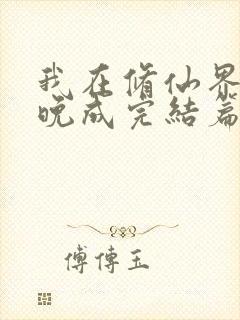 我在脩仙界
晚成完結篇
傅傳玉